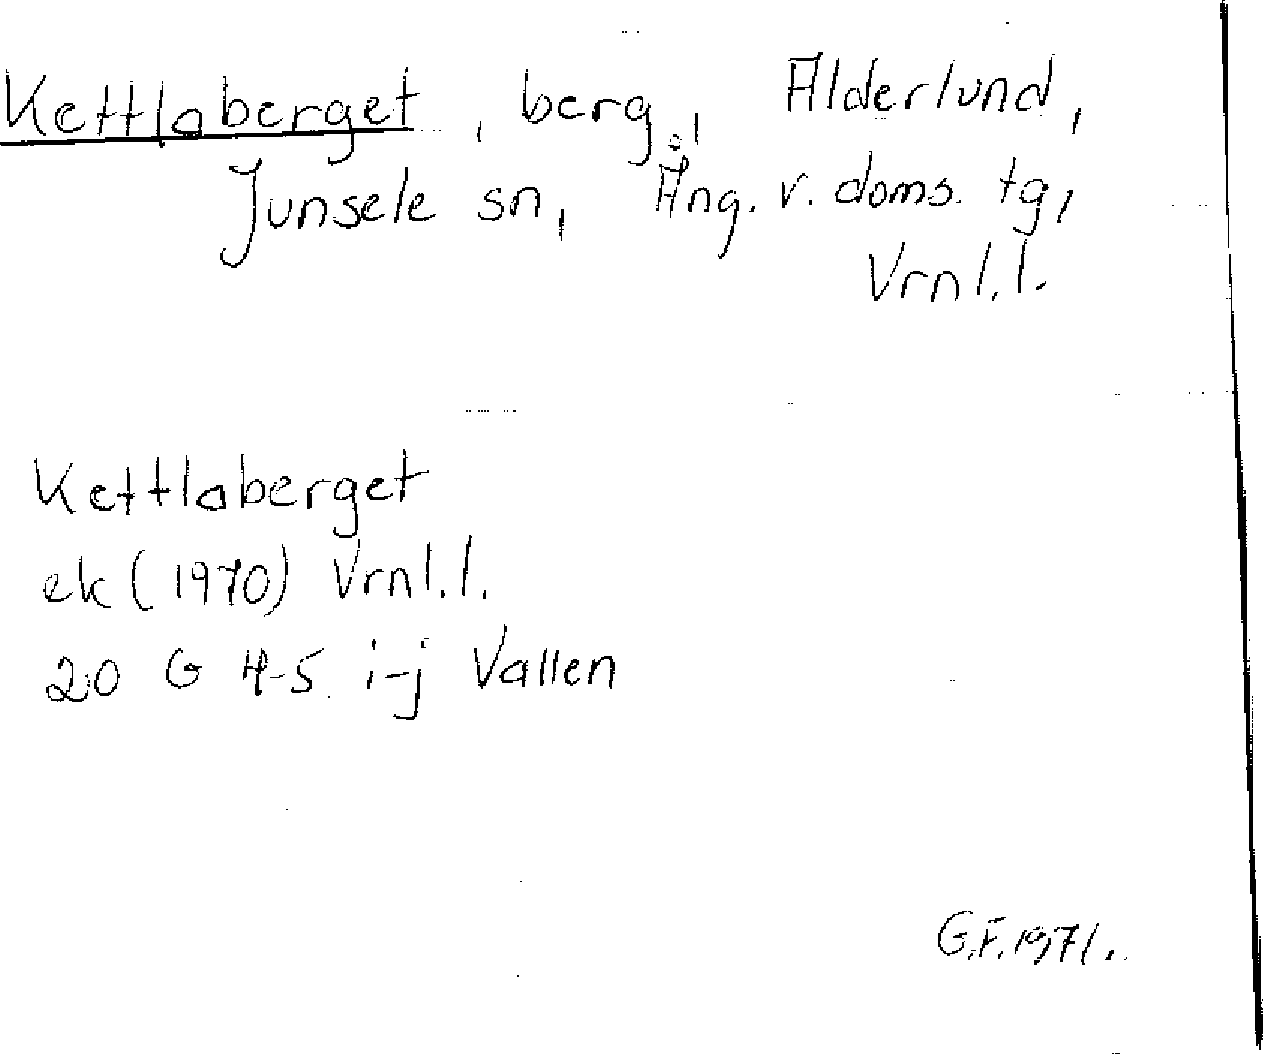 Kettlaberget, berg, Alderlund,
Junsele sn, Ång. v. doms. tg,
Vrnl.l.
Kettlaberget
ek (1970) Vrnl.l.
20 G 4-5 i-j Vallen
G.F. 1971.